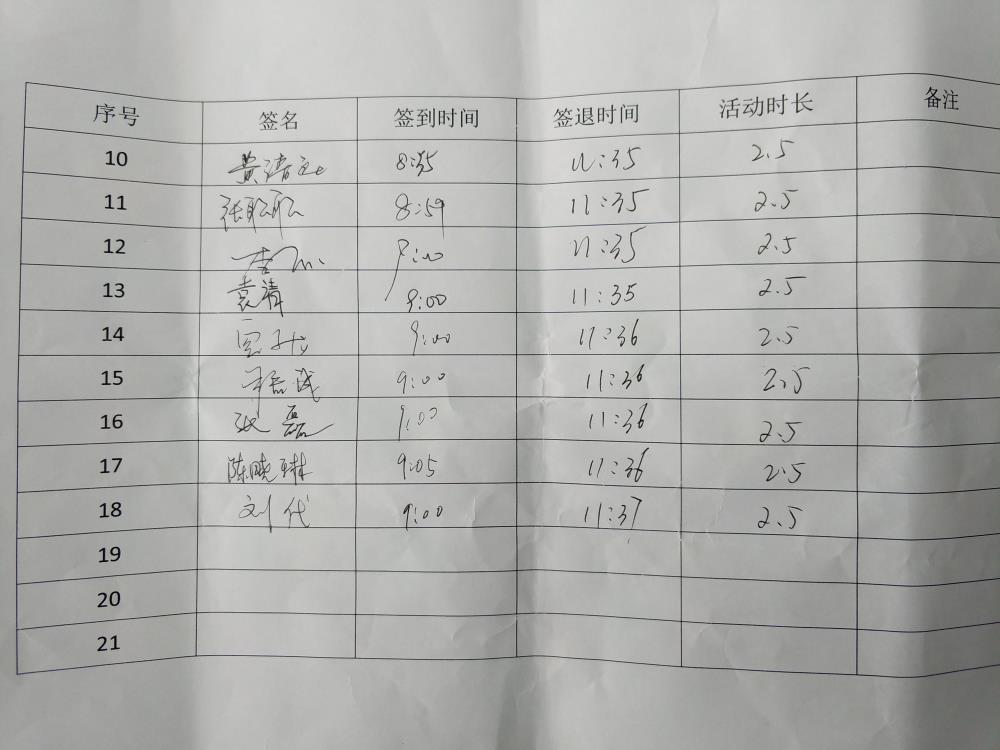 序号 签名 签到时间 签退时间 活动时长 备注
10 8:55 11:35 2.5
11 8:59 11:35 2.5
12 9:00 11:35 2.5
13 袁清 9:00 11:35 2.5
14 9:00 11:36 2.5
15 9:00 11:36 2.5
16 磊 9:00 11:36 2.5
17 陈晓琳 9:05 11:36 2.5
18 刘代 9:00 11:37 2.5
19
20
21